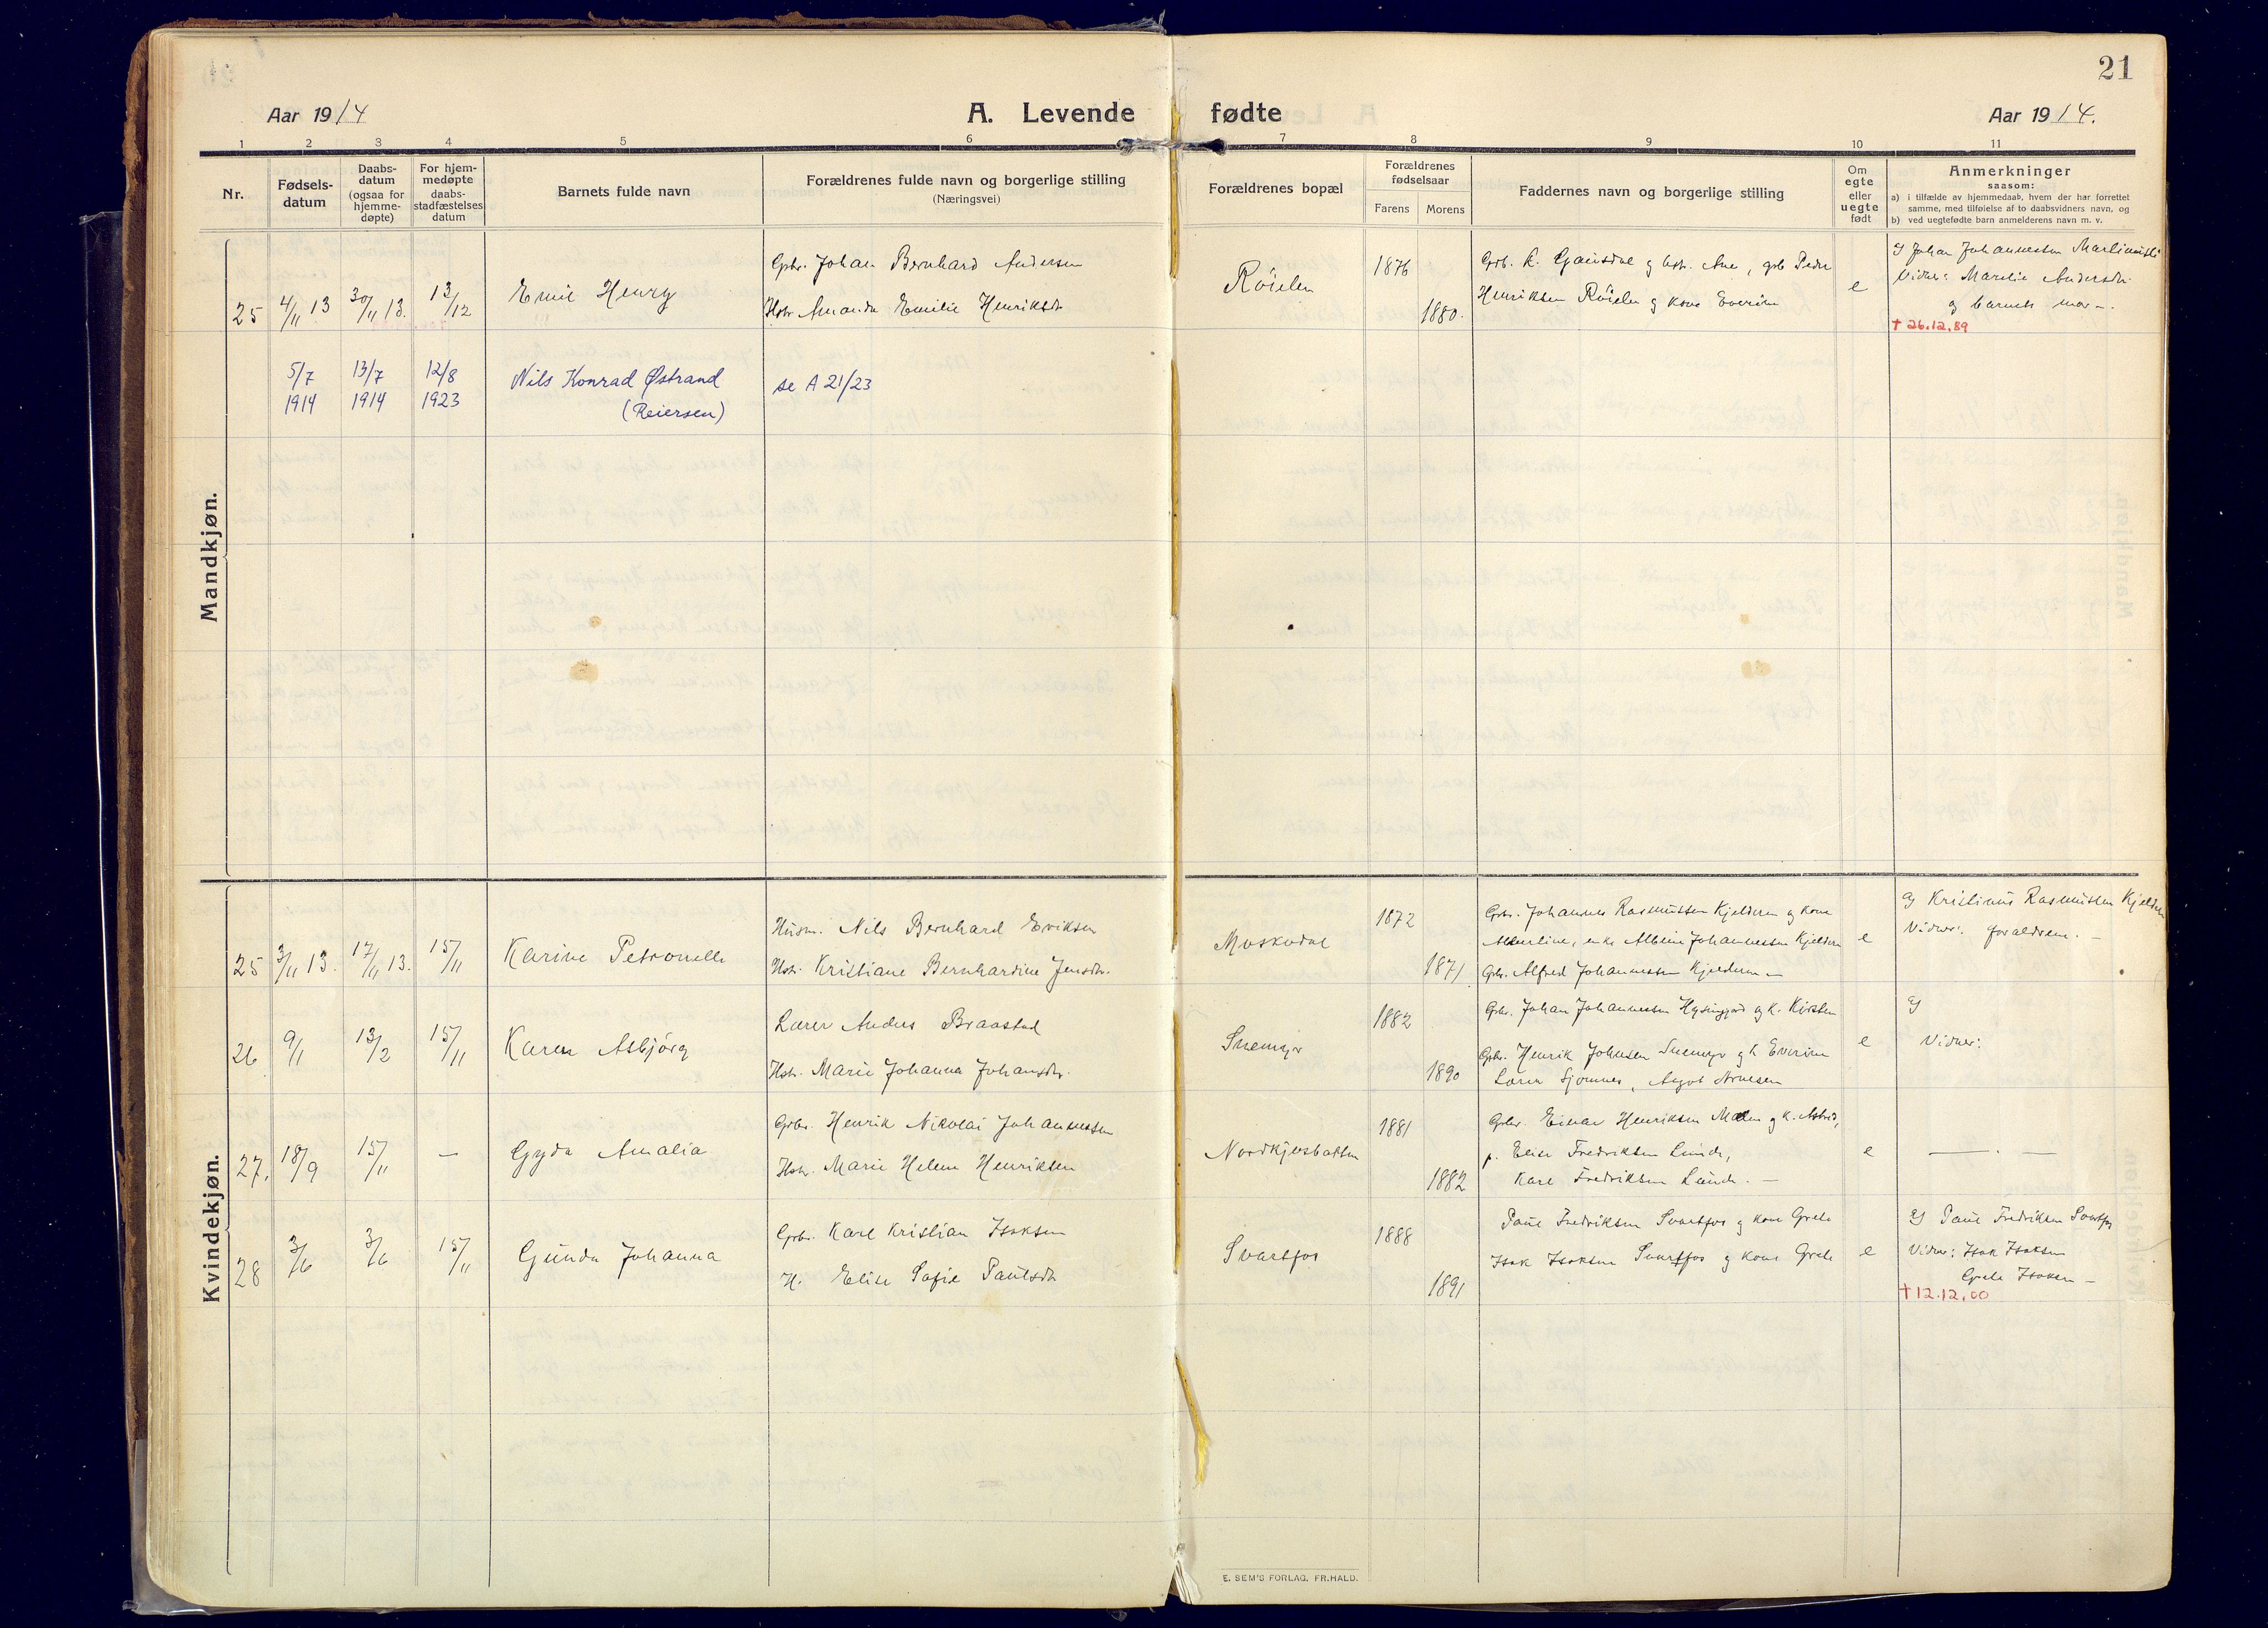 21
Aar 1914
A. Levende fødte
Aar 1914.
1 2 3 4 5 6 7 8 9 10 11
Nr.
Fødsels-
datum
Daabs-
datum
(ogsaa for
hjemme-
døpte)
For hjem-
medøpte
daabs-
stadfæstelses
datum
Barnets fulde navn
Forældrenes fulde navn og borgerlige stilling
(Næringsvei)
Forældrenes bopæl
Forældrenes
fødselsaar
Farens Morens
Faddernes navn og borgerlige stilling
Om
egte
eller
uegte
født
Anmerkninger
saasom:
a) i tilfælde av hjemmedaab, hvem der har forrettet
samme, med tilføielse af to daabsvidners navn, og
b) ved uegtefødte barn anmelderens navn m. v.
Mandkjøn.
25 4/11 13 30/11 13. 13/12
Emil Henry
Gbr. Johan Bernhard Andersen
Hstr. Amanda Emilie Henriksdtr
Röielen
1876
1880.
Henriksen Röielen og kone Everine
e
Johan Johannesen
Vidner: Andersdtr
og barnets mor –.
† 26.12.89
5/7 13/7 12/8
1914 1914 1923
Nils Konrad Østrand
(Reiersen)
se A 21/23
Kvindekjøn.
25 3/11 13. 17/11 13. 15/11
Karine Petronelle
Husm. Nils Bernhard Eriksen
Hstr. Kristiane Bernhardine Jensdtr.
Moskodal
1872
1871
Gbr. Johannes Rasmussen Kjelderen og kone
Albertine, enke Johannessen Kjelderen
Gbr. Alfred Johannessen Kjelderen –
e
Kristinus Rasmussen Kjelderen
Vidner: forældrene. –
26 9/1 13/2 15/11
Karen Asbjörg
Lærer Anders Braastad
Hstr. Marie Johanna Johansdtr.
Snemyr
1882
1890
Gbr. Johan Johannessen og k. Kirsten
Gbr. Henrik Johnsen Snemyr og h. Everine
Lærer
e
Vidner:
27. 18/9 15/11 —
Gyda Amalia
Gbr. Henrik Nikolai Johannessen
Hstr. Marie Helene Henriksen
Nordkjosbotten
1881
1882
Gbr. Einar Henriksen Malen og k. Astrid,
p. Elise Fredriksen Lunde,
Karl Fredriksen Lunde. –
e
— . —
28 3/6 3/6 15/11
Gunda Johanna
Gbr. Karl Kristian Isaksen
H. Elise Sofie Paulsdtr
Svartfos
1888
1891
Paul Fredriksen Svartfos og kone Grete
Isak Isaksen Svartfos og kone Grete
e
Paul Fredriksen Svartfos
Vidner: Isak Isaksen
Grete Isaksen –
† 12.12.00
E. SEM'S FORLAG, FR.HALD.